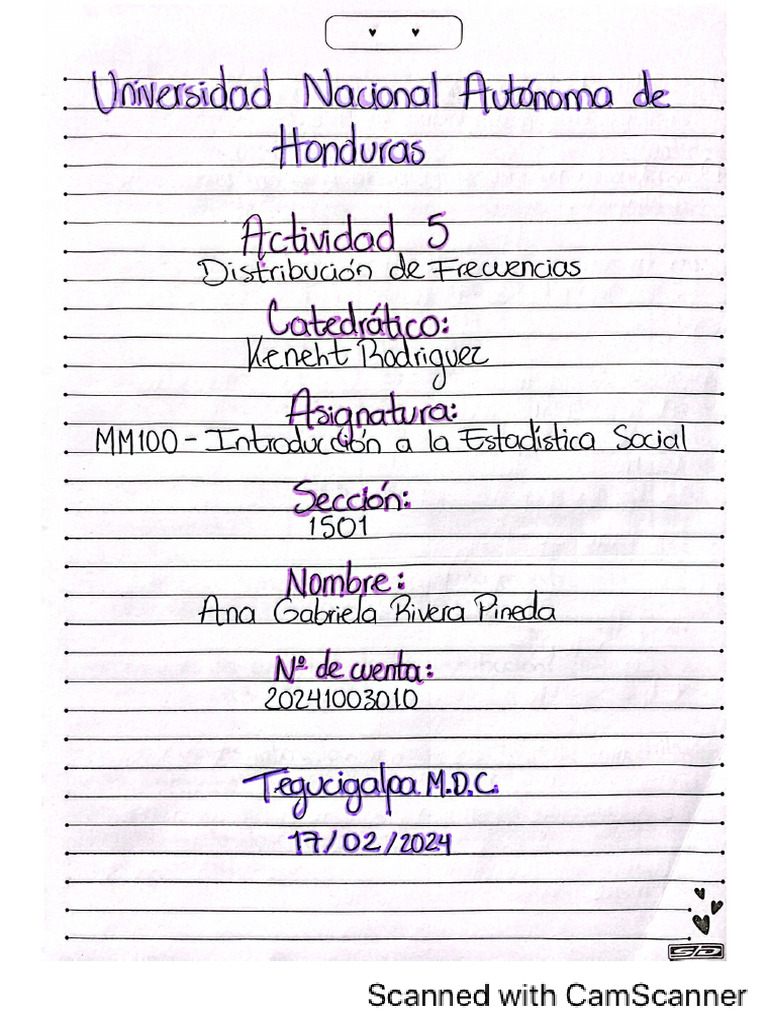 Universidad Nacional Autónoma de
Honduras
Actividad 5
Distribución de Frecuencias
Catedrático:
Keneht Rodriguez
Asignatura:
MM100 - Introducción a la Estadística Social
Sección:
1501
Nombre:
Ana Gabriela Rivera Pineda
Nº de cuenta:
20241003010
Tegucigalpa M.D.C.
17/02/2024
Scanned with CamScanner